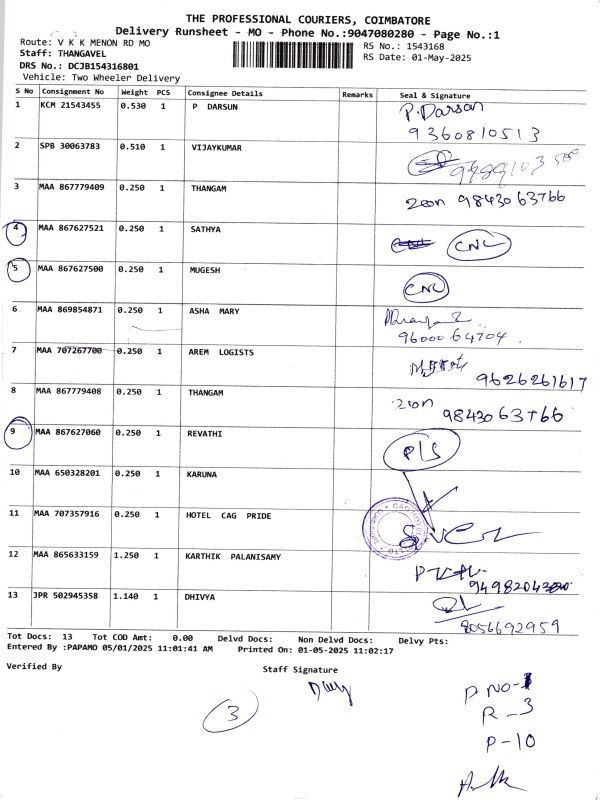 THE PROFESSIONAL COURIERS, COIMBATORE
Delivery Runsheet - MO - Phone No.:9047080280 - Page No.:1
Route: V K K MENON RD MO
RS No.: 1543168
Staff: THANGAVEL
RS Date: 01-May-2025
DRS No.: DCJB154316801
Vehicle: Two Wheeler Delivery
S No Consignment No Weight PCS Consignee Details Remarks Seal & Signature
1 KCM 21543455 0.530 1 P DARSUN P. Darsan
9360810513
2 SPB 30063783 0.510 1 VIJAYKUMAR
3 MAA 867779409 0.250 1 THANGAM 9843063766
4 MAA 867627521 0.250 1 SATHYA CNL
5 MAA 867627500 0.250 1 MUGESH CNL
6 MAA 869854871 0.250 1 ASHA MARY
9600064704
7 MAA 707267700 0.250 1 AREM LOGISTS
9626261617
8 MAA 867779408 0.250 1 THANGAM
9843063766
9 MAA 867627060 0.250 1 REVATHI P/S
10 MAA 650328201 0.250 1 KARUNA
11 MAA 707357916 0.250 1 HOTEL CAG PRIDE
12 MAA 865633159 1.250 1 KARTHIK PALANISAMY
13 JPR 502945358 1.140 1 DHIVYA
8056692959
Tot Docs: 13 Tot COD Amt: 0.00 Delvd Docs: Non Delvd Docs: Delvy Pts:
Entered By :PAPAMO 05/01/2025 11:01:41 AM Printed On: 01-05-2025 11:02:17
Verified By Staff Signature
3
P NO-1
R-3
P-10